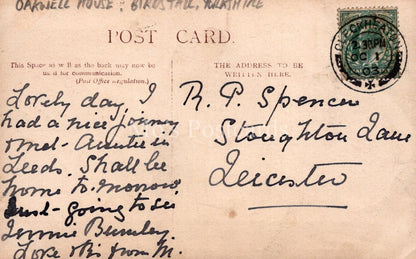 OAKWELL HOUSE: BIRDSTALL, YORKSHIRE
POST CARD.
This Space as well as the back may now be
used for communication.
(Post Office Regulation.)
THE ADDRESS TO BE
WRITTEN HERE.
CLECKHEATON
2.30 PM
OC 1
03
Lovely day, I
had a nice journey
met Auntie in
Leeds. Shall be
home to-morrow,
and going to see
Jennie Burnley.
Love from M.
R. P. Spencer
Stoughton Lane
Leicester